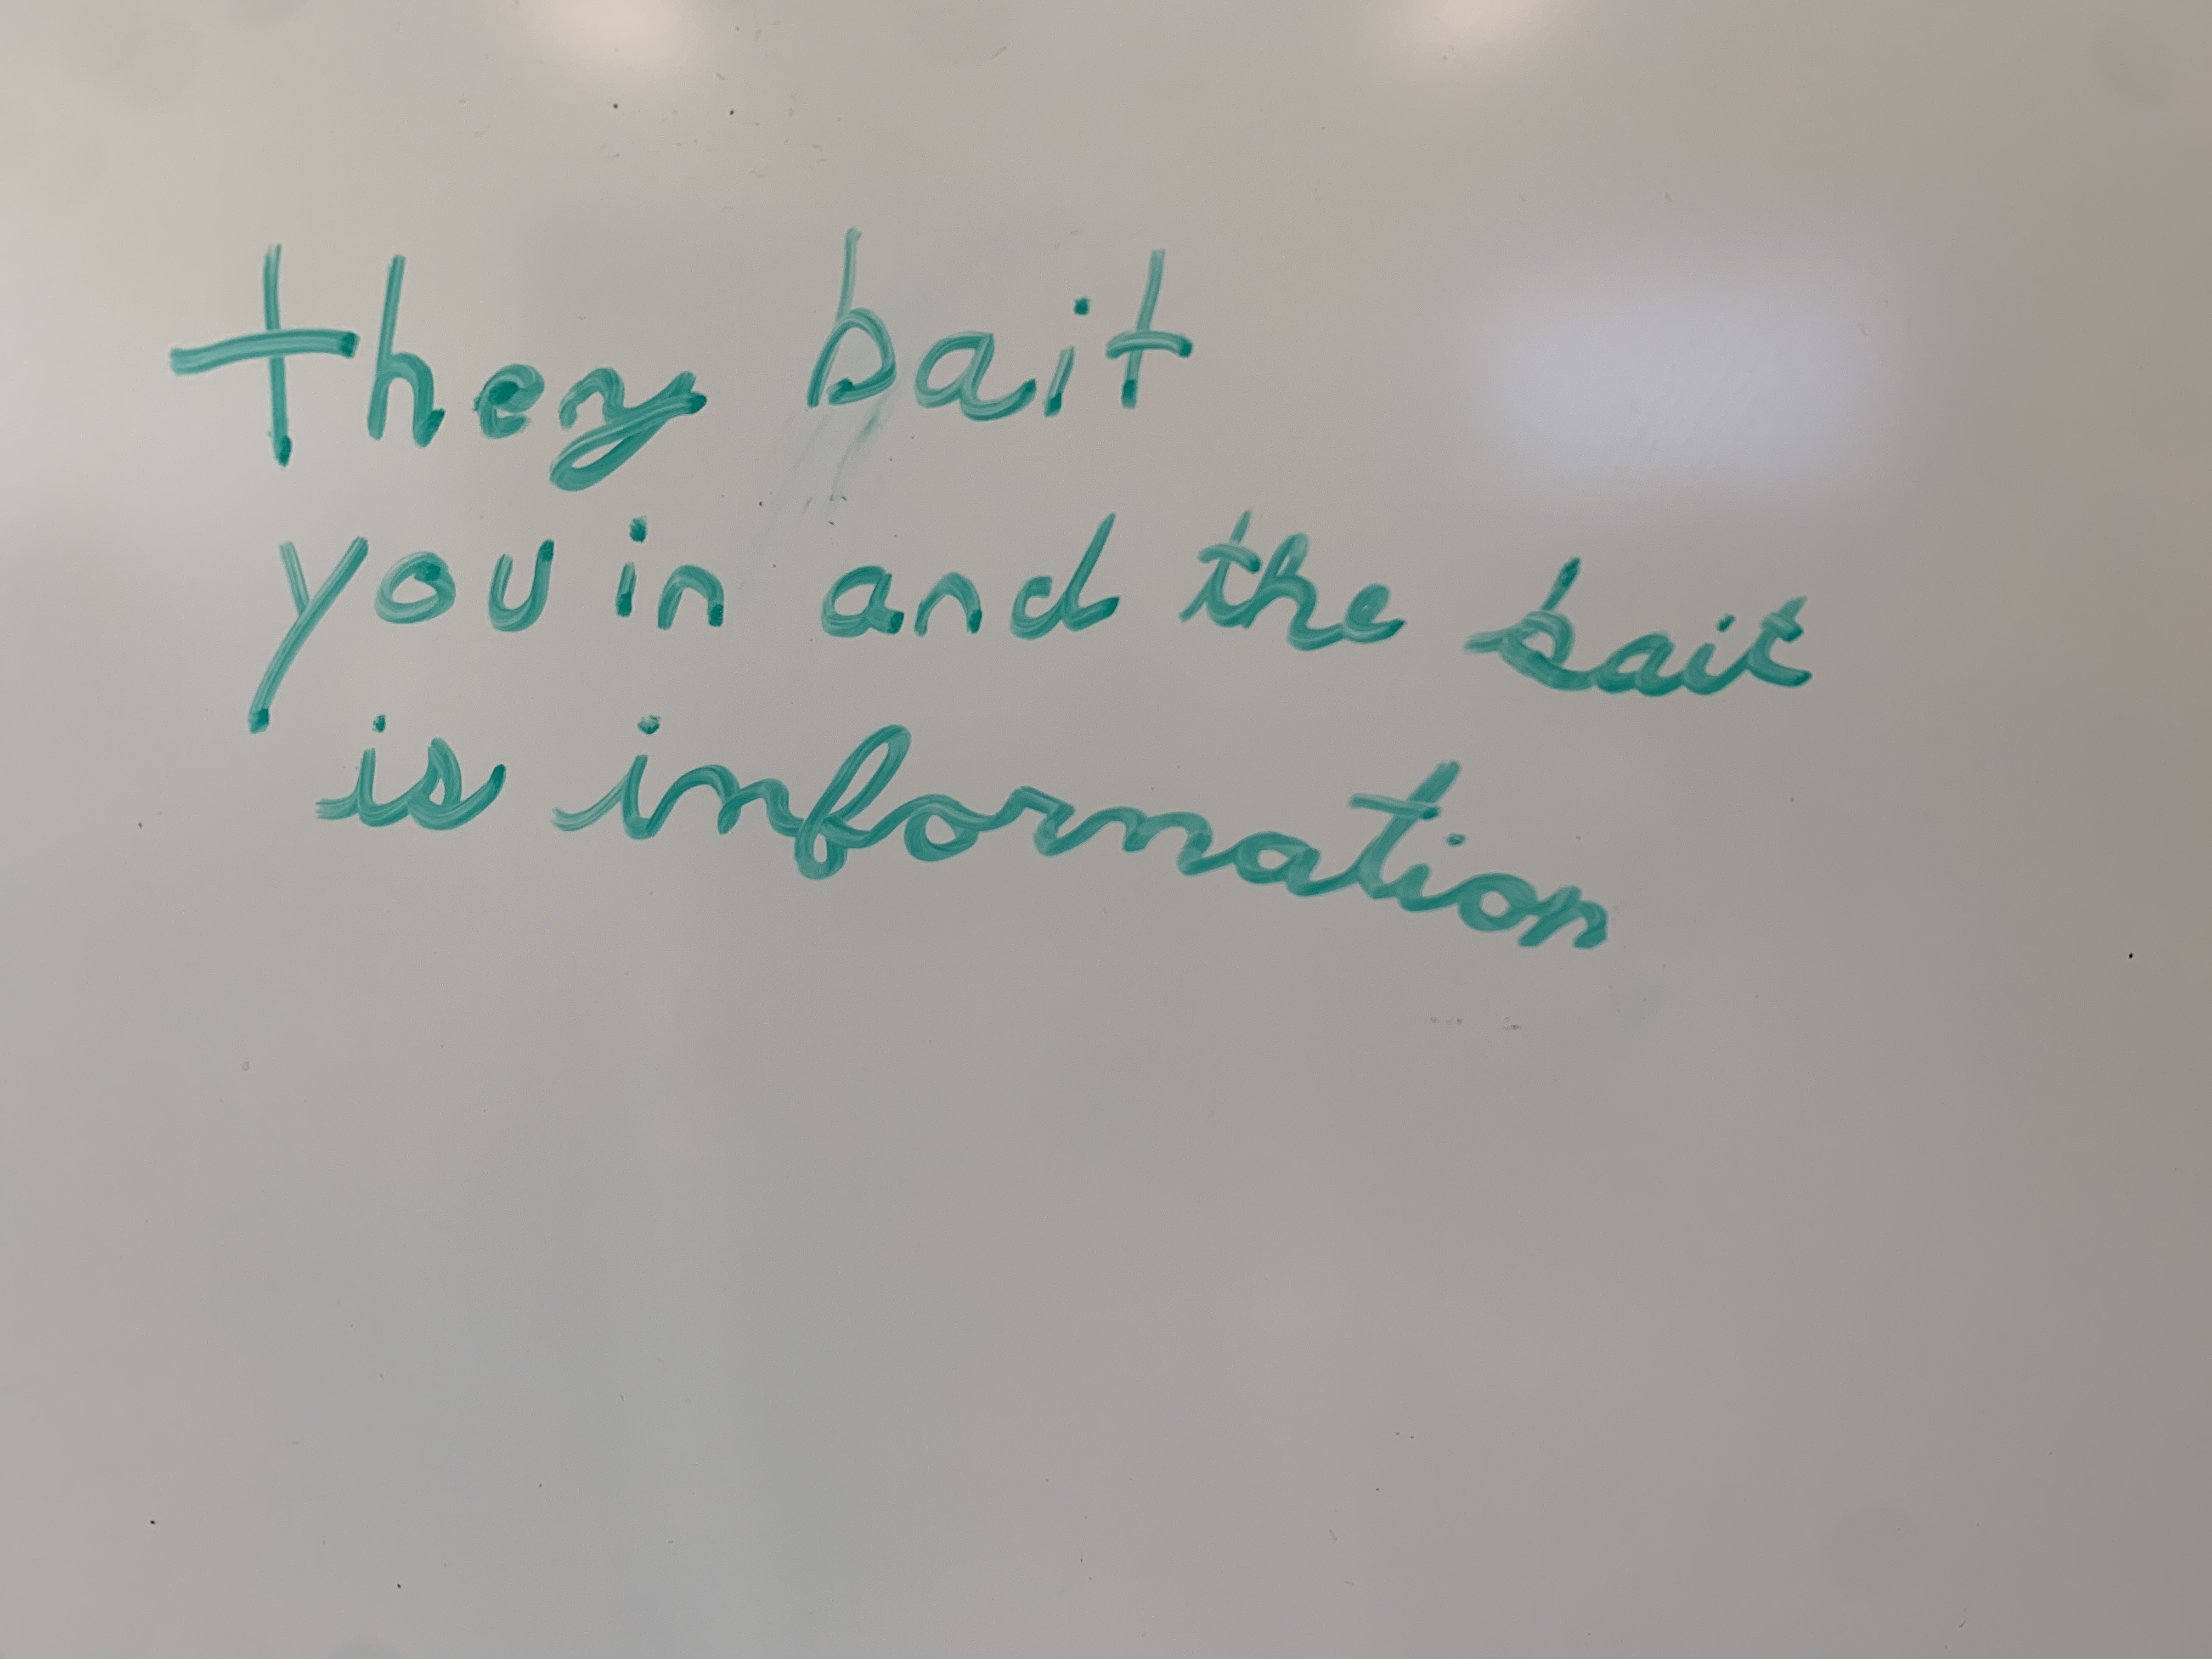 they bait
you in and the bait
is information